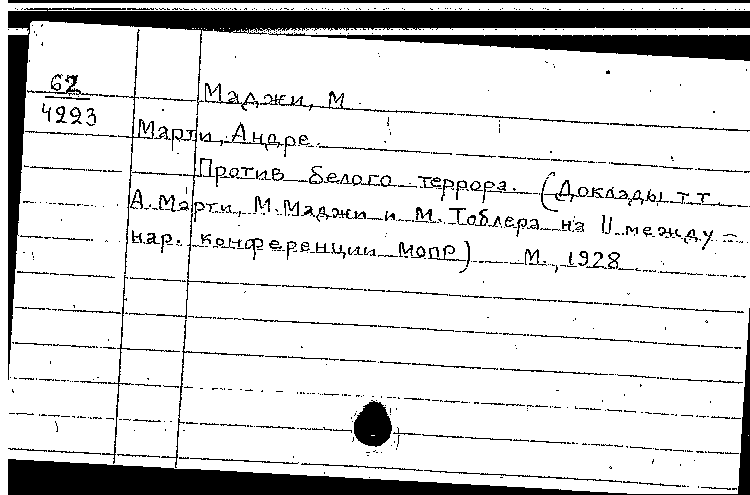 62
4223
Маджи, М
Марти, Андре.
Против белого террора. (Доклады т.т.
А. Марти, М. Маджи и М. Тоблера на II между-
нар. конференции МОПР) М., 1928